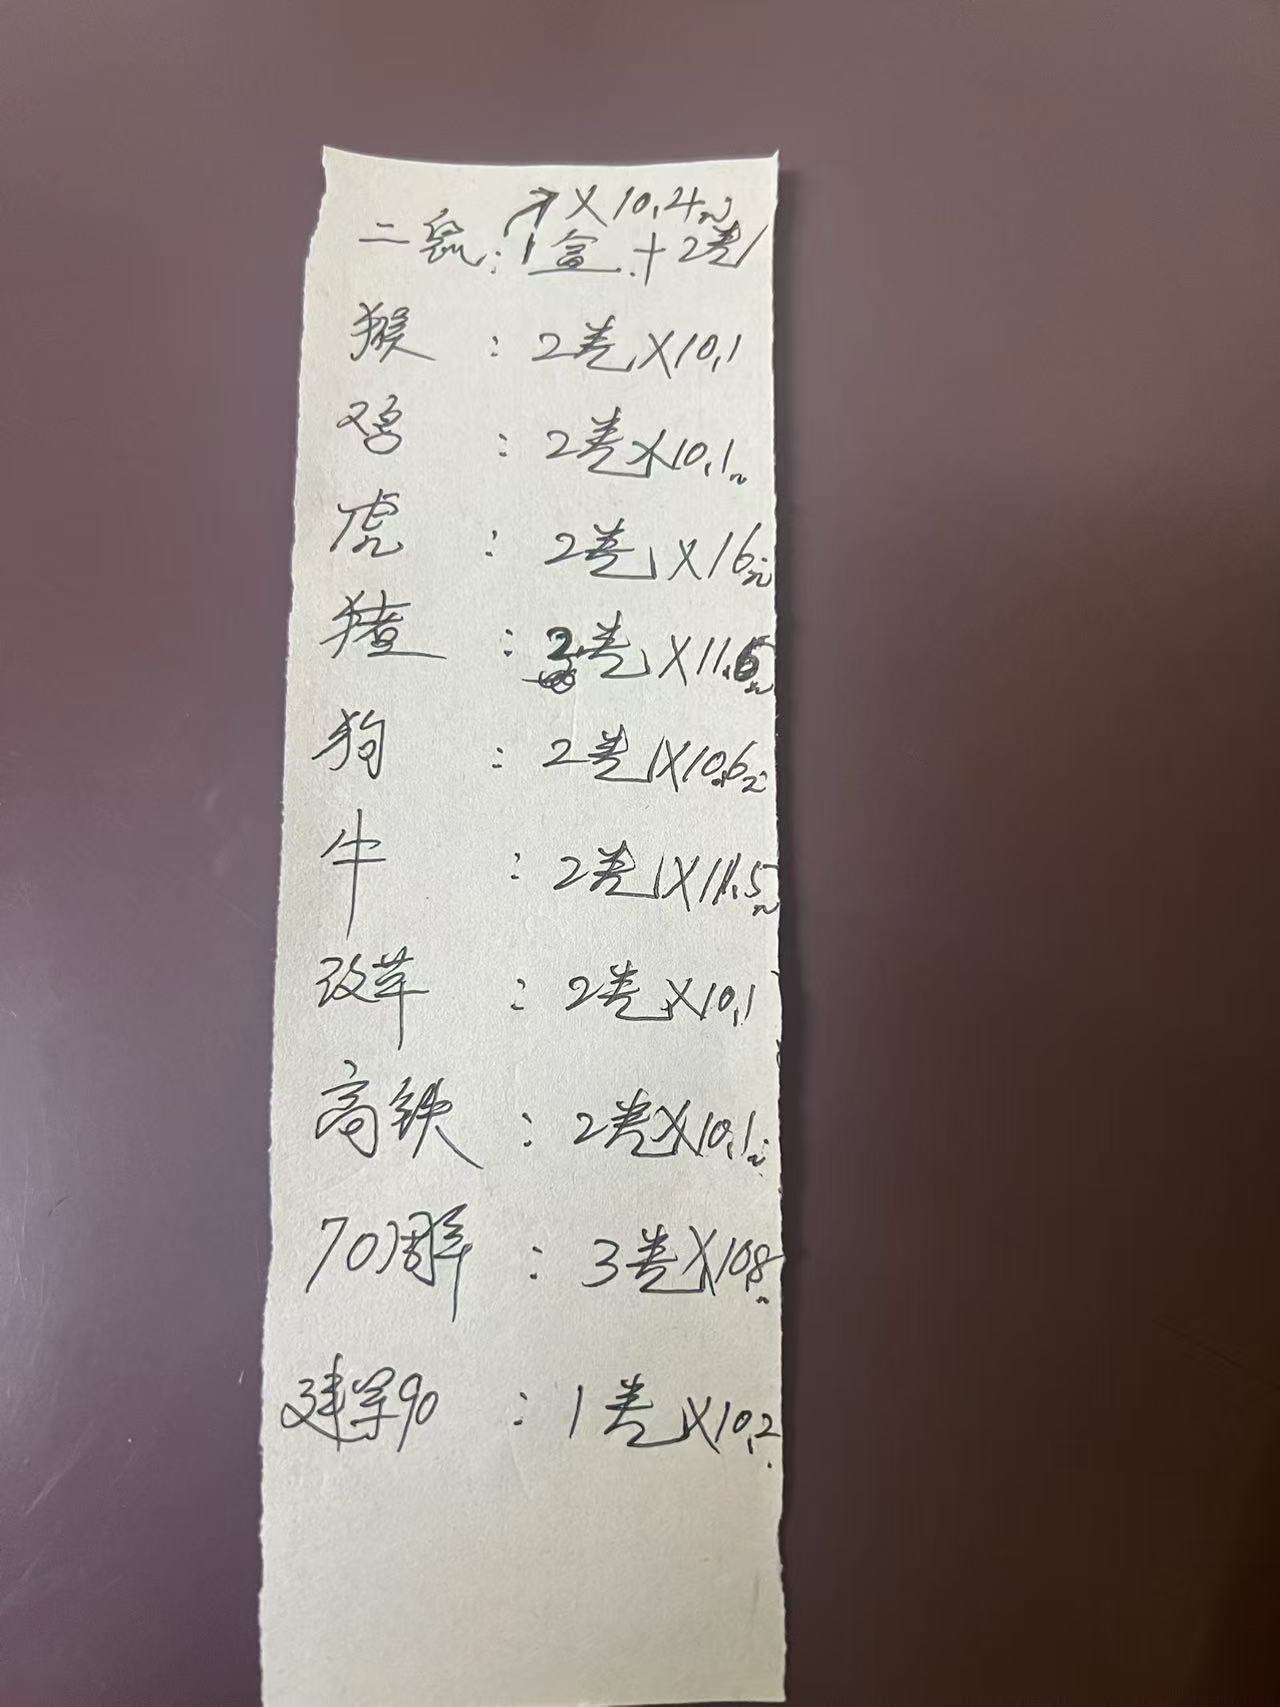 X10.4元
二鼠:1盒+2卷
猴:2卷X10.1
鸡:2卷X10.1元
虎:2卷X16元
猪:2卷X11.6元
狗:2卷X10.6元
牛:2卷X11.5元
改革:2卷X10.1
高铁:2卷X10.1元
70周年:3卷X10.8元
建军90:1卷X10.2